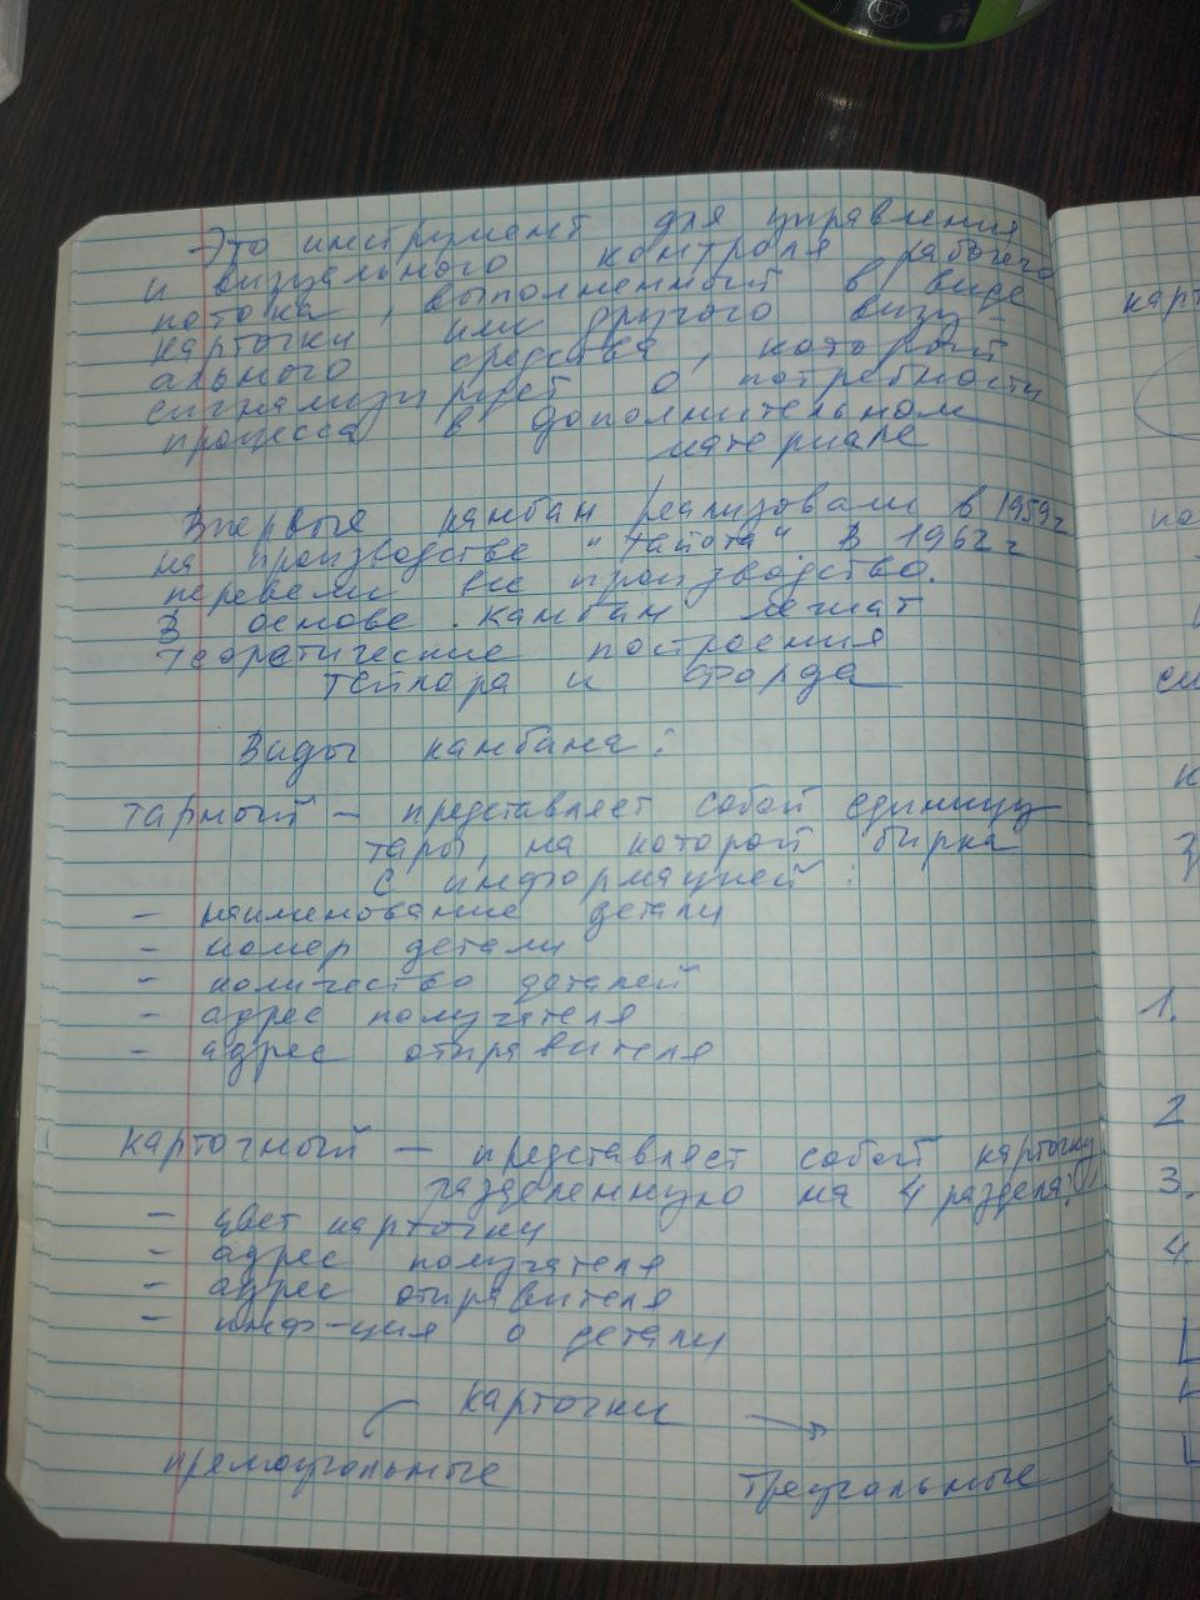 Это инструмент для управления
и визуального контроля рабочего
потока, выполненный в виде
карточки или другого визу-
ального средства, который
сигнализирует о потребности
процесса в дополнительном
материале
Впервые канбан реализовали в 1959г
на производстве "Тайота" в 1962 г
перевели все производство.
В основе канбан лежат
теоратические построения
Тейлора и Форда
Виды канбана:
Тарный — представляет собой единицу
тары, на которой бирка
с информацией:
- наименование детали
- номер детали
- количество деталей
- адрес получателя
- адрес отправителя
Карточный — представляет собой карточку
разделенную на 4 раздела:
- цвет карточки
- адрес получателя
- адрес отправителя
- инф-ция о детали
карточки
прямоугольные треугольные
карт
по
си
к
1.
2
3.
4.